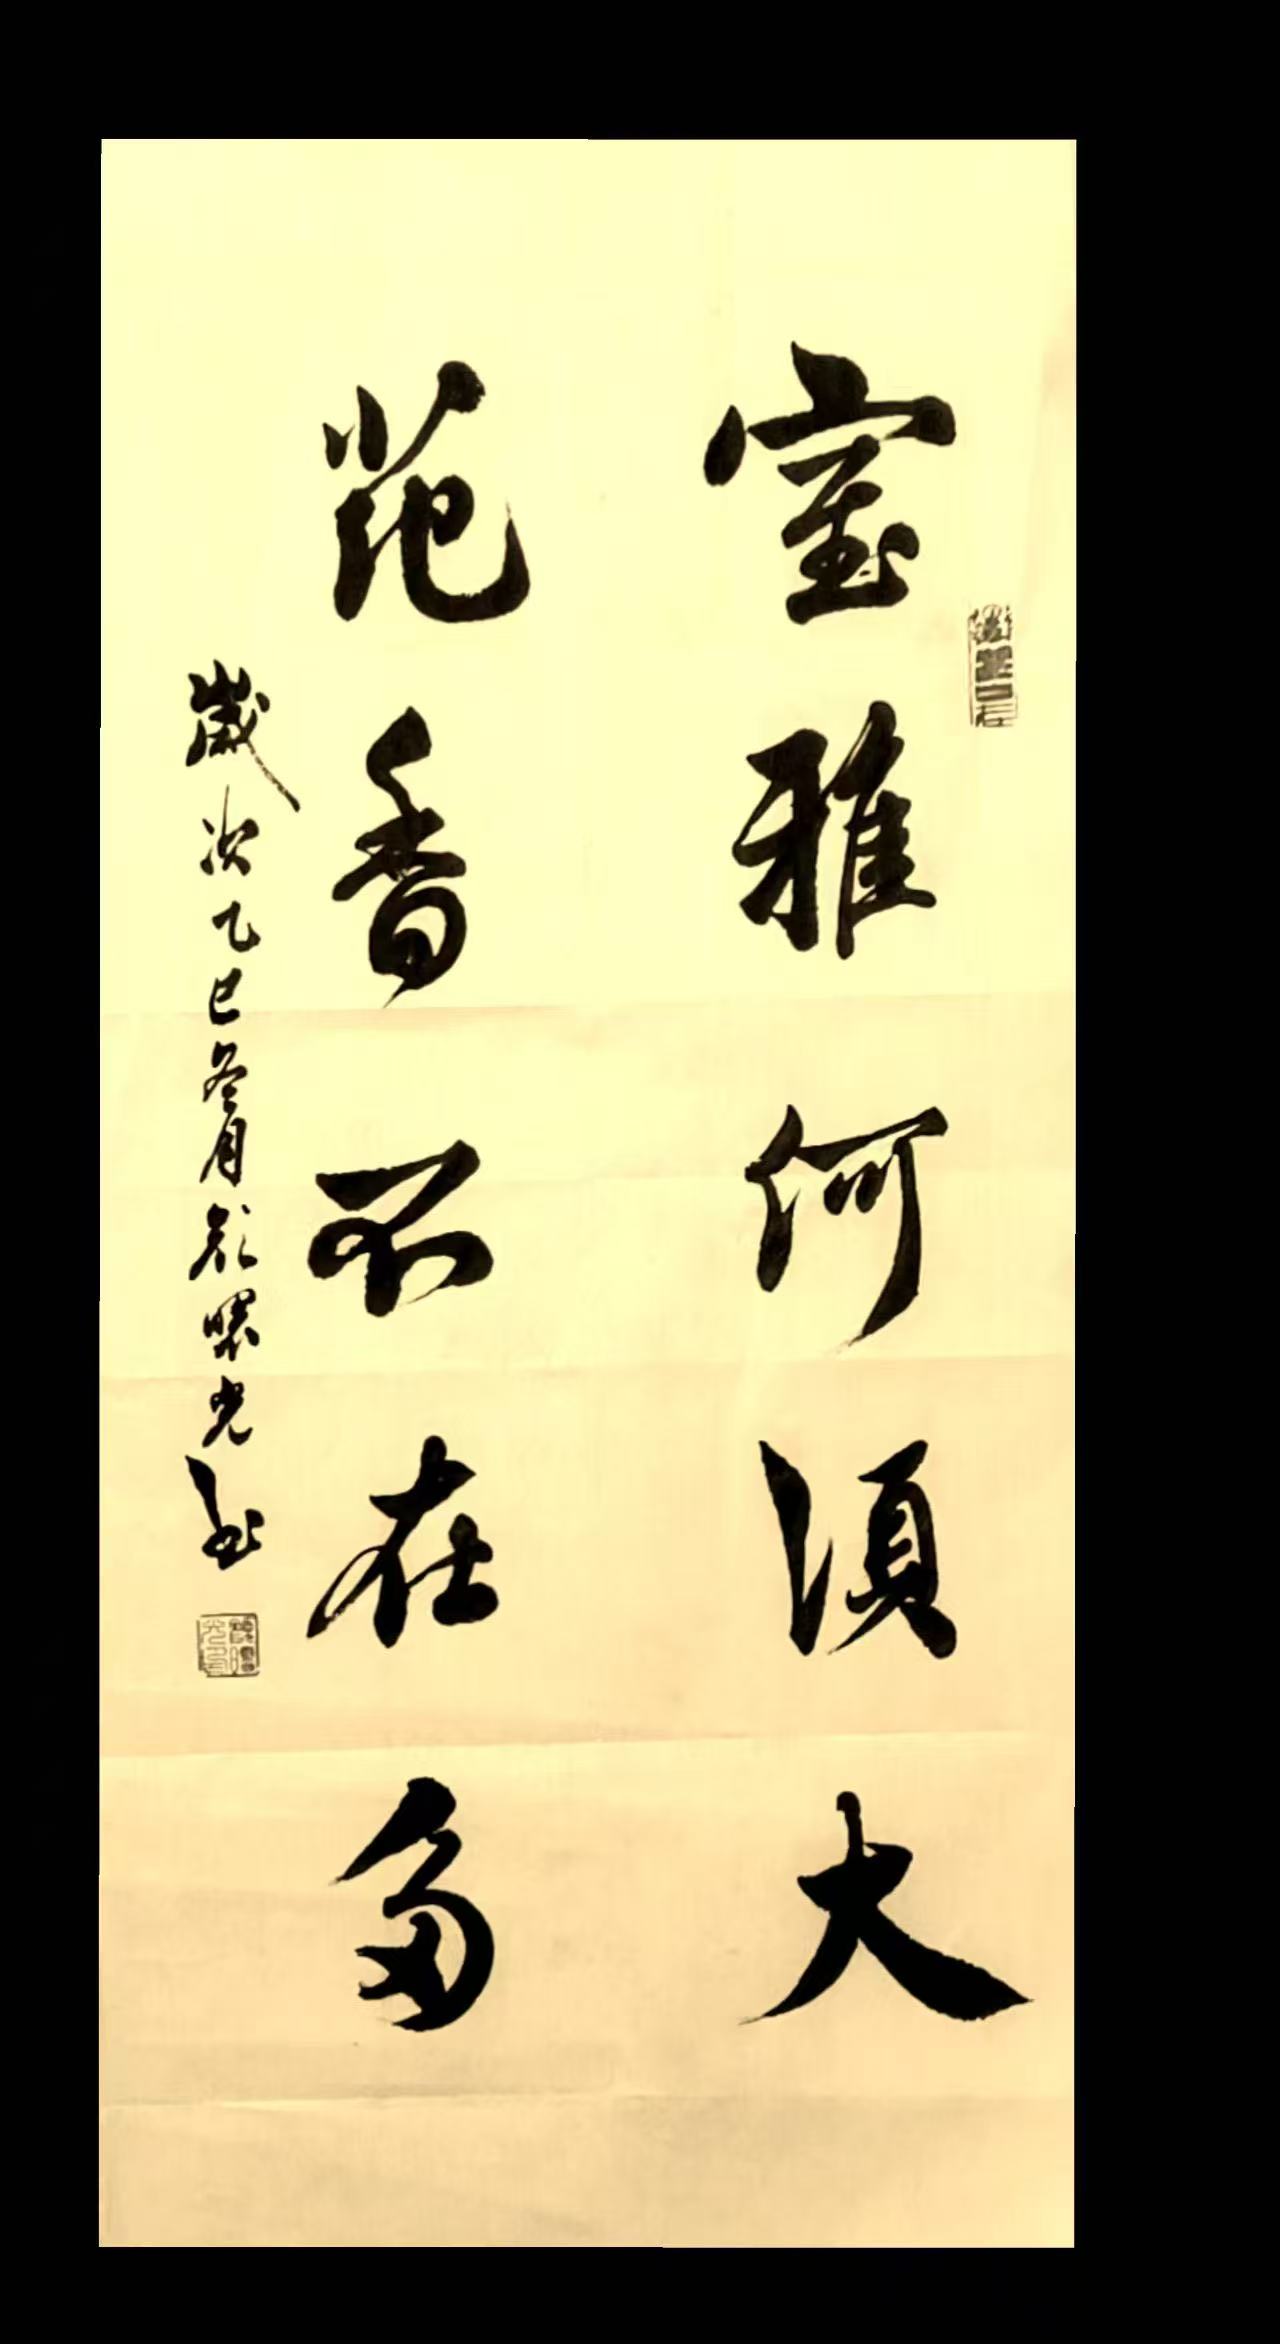 室雅何須大
花香不在多
歲次乙巳冬月顧曙光書